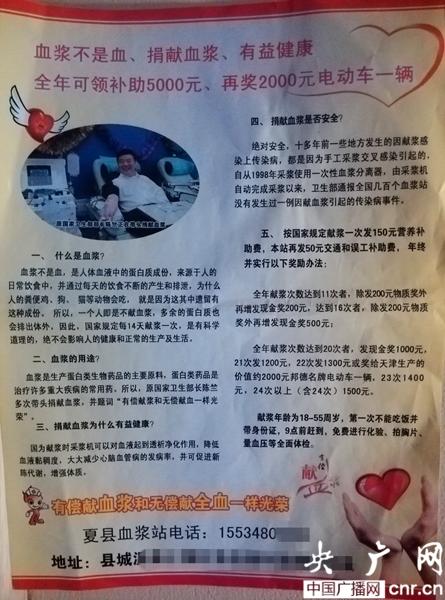 血浆不是血、捐献血浆、有益健康
全年可领补助5000元、再奖2000元电动车一辆
原国家卫生部部长陈竺正在带头捐献血浆
一、 什么是血浆?
血浆不是血，是人体血液中的蛋白质成份，来源于人的
日常饮食中，并通过每天的饮食不断的产生和排泄，为什么
人的粪便鸡、狗、猫等动物会吃，就是因为这其中遗留有
这种成份。所以，一个人即是不献血浆，多余的蛋白质也
会排出体外，因此，国家规定每14天献浆一次，是有科学
道理的，绝不会影响人的健康和正常的生产及生活。
二、血浆的用途?
血浆是生产蛋白类生物药品的主要原料，蛋白类药品是
治疗许多重大疾病的常用药。所以，原国家卫生部长陈竺
多次带头捐献血浆，并题词“有偿献浆和无偿献血一样光
荣”。
三、捐献血浆为什么有益健康?
因为献浆时采浆机可以对血液起到透析净化作用，降低
血液黏稠度，大大减少心脑血管病的发病率，并可促进新
陈代谢，增强体质。
四、 捐献血浆是否安全?
绝对安全，十多年前一些地方发生的因献浆感
染上传染病，都是因为手工采浆交叉感染引起的，
自从1998年采浆使用一次性血浆分离器，由采浆机
自动完成采浆以来，卫生部通报全国几百个血浆站
没有发生过一例因献血浆引起的传染病事件。
五、 按国家规定献浆一次发150元营养补
助费，本站再发50元交通和误工补助费， 年终
并实行以下奖励办法：
全年献浆次数达到11次者，除发200元物质奖外
再增发现金奖200元，达到16次者，除发200元物质
奖外再增发现金奖500元；
全年献浆次数达到20次者，发现金奖1000元，
21次发1200元，22次发1300元或奖给天津生产的
价值约2000元邦德名牌电动车一辆，23次1400
元，24次以上（含24次）1500元。
献浆年龄为18-55周岁，第一次不能吃饭并
带身份证，9点前赶到，免费进行化验、拍胸片、
量血压等全面体检。
有偿献血浆和无偿献全血一样光荣
夏县血浆站电话：1553480
地址：县城
央广网
中国广播网 cnr.cn